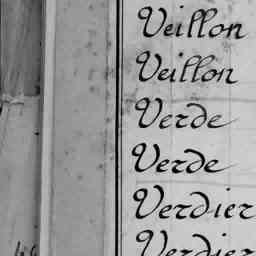 Veillon
Veillon
Verde
Verde
Verdier
Verdier